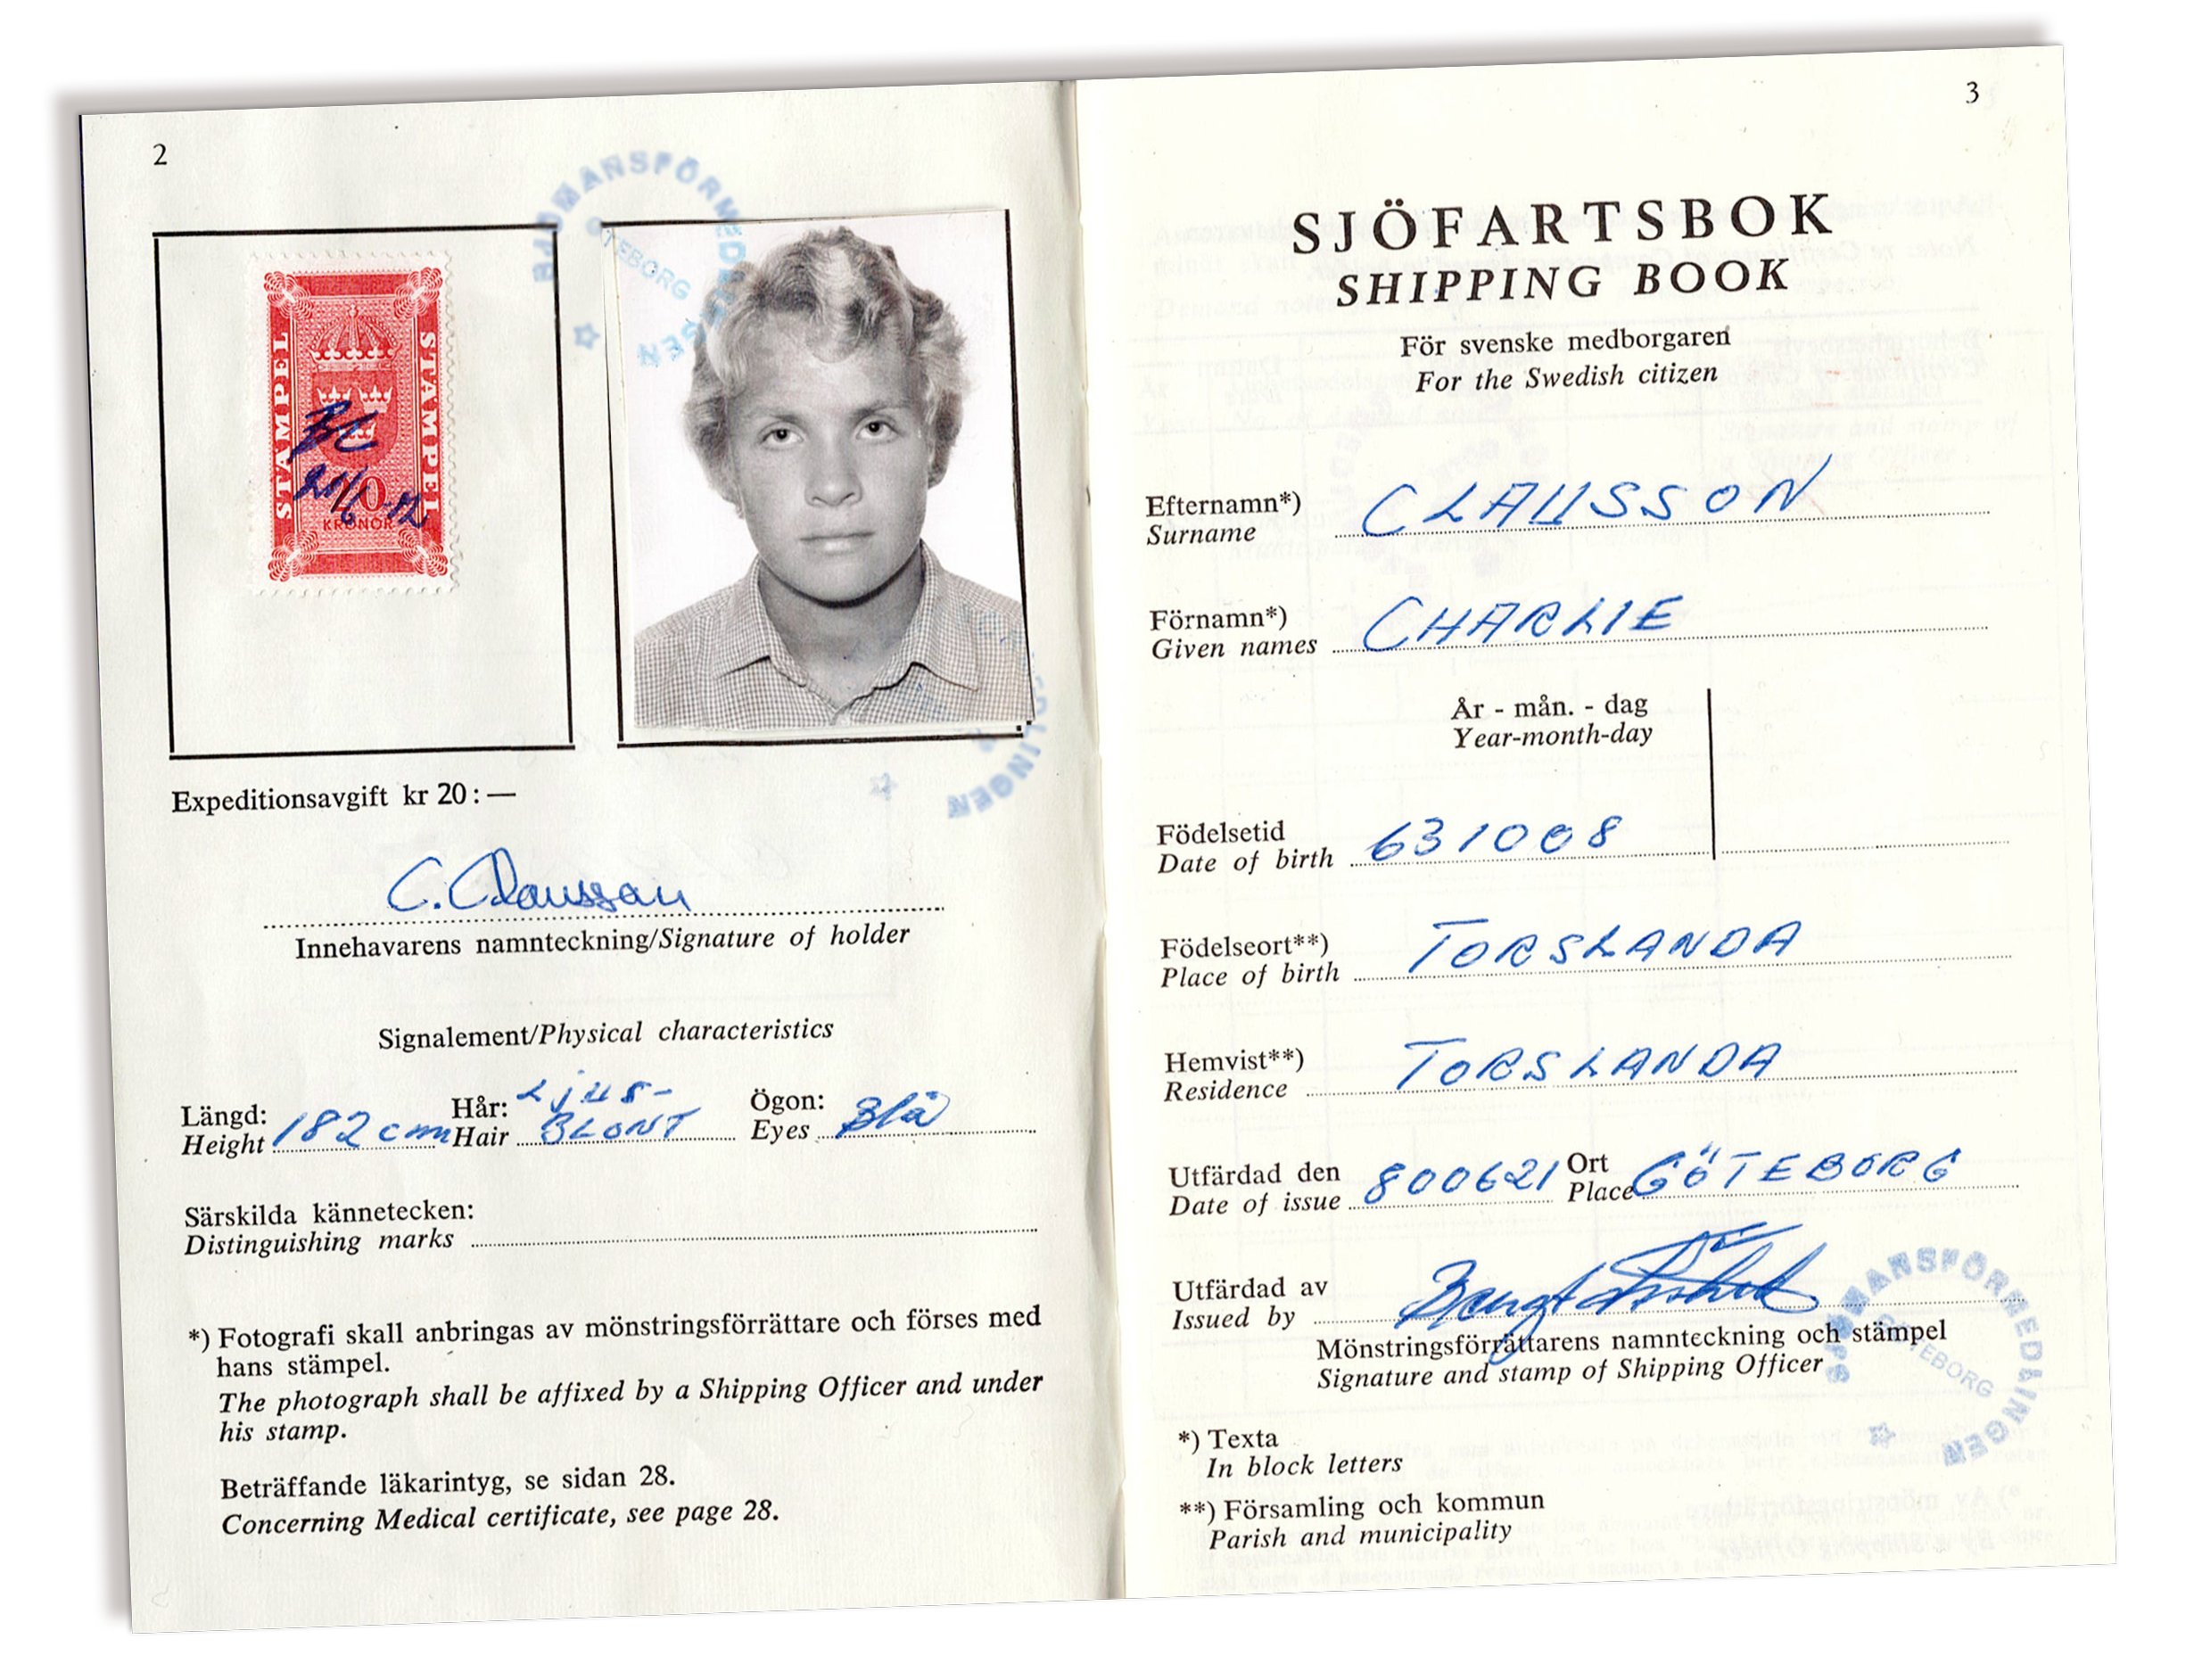 2
SJÖMANSFÖRMEDLINGEN
GÖTEBORG
STÄMPEL STÄMPEL
KRONOR
Expeditionsavgift kr 20:—
C. Claussson
Innehavarens namnteckning/Signature of holder
Signalement/Physical characteristics
Längd: Hår: LJUS- Ögon:
Height 182 cm Hair BLONT Eyes Blå
Särskilda kännetecken:
Distinguishing marks
*) Fotografi skall anbringas av mönstringsförrättare och förses med
hans stämpel.
The photograph shall be affixed by a Shipping Officer and under
his stamp.
Beträffande läkarintyg, se sidan 28.
Concerning Medical certificate, see page 28.
3
SJÖFARTSBOK
SHIPPING BOOK
För svenske medborgaren
For the Swedish citizen
Efternamn*) CLAUSSON
Surname
Förnamn*) CHARLIE
Given names
År - mån. - dag
Year-month-day
Födelsetid 631008
Date of birth
Födelseort**) TORSLANDA
Place of birth
Hemvist**) TORSLANDA
Residence
Utfärdad den 800621 Ort GÖTEBORG
Date of issue Place
Utfärdad av Bengt
Issued by
Mönstringsförrättarens namnteckning och stämpel
Signature and stamp of Shipping Officer
SJÖMANSFÖRMEDLINGEN
GÖTEBORG
*) Texta
In block letters
**) Församling och kommun
Parish and municipality